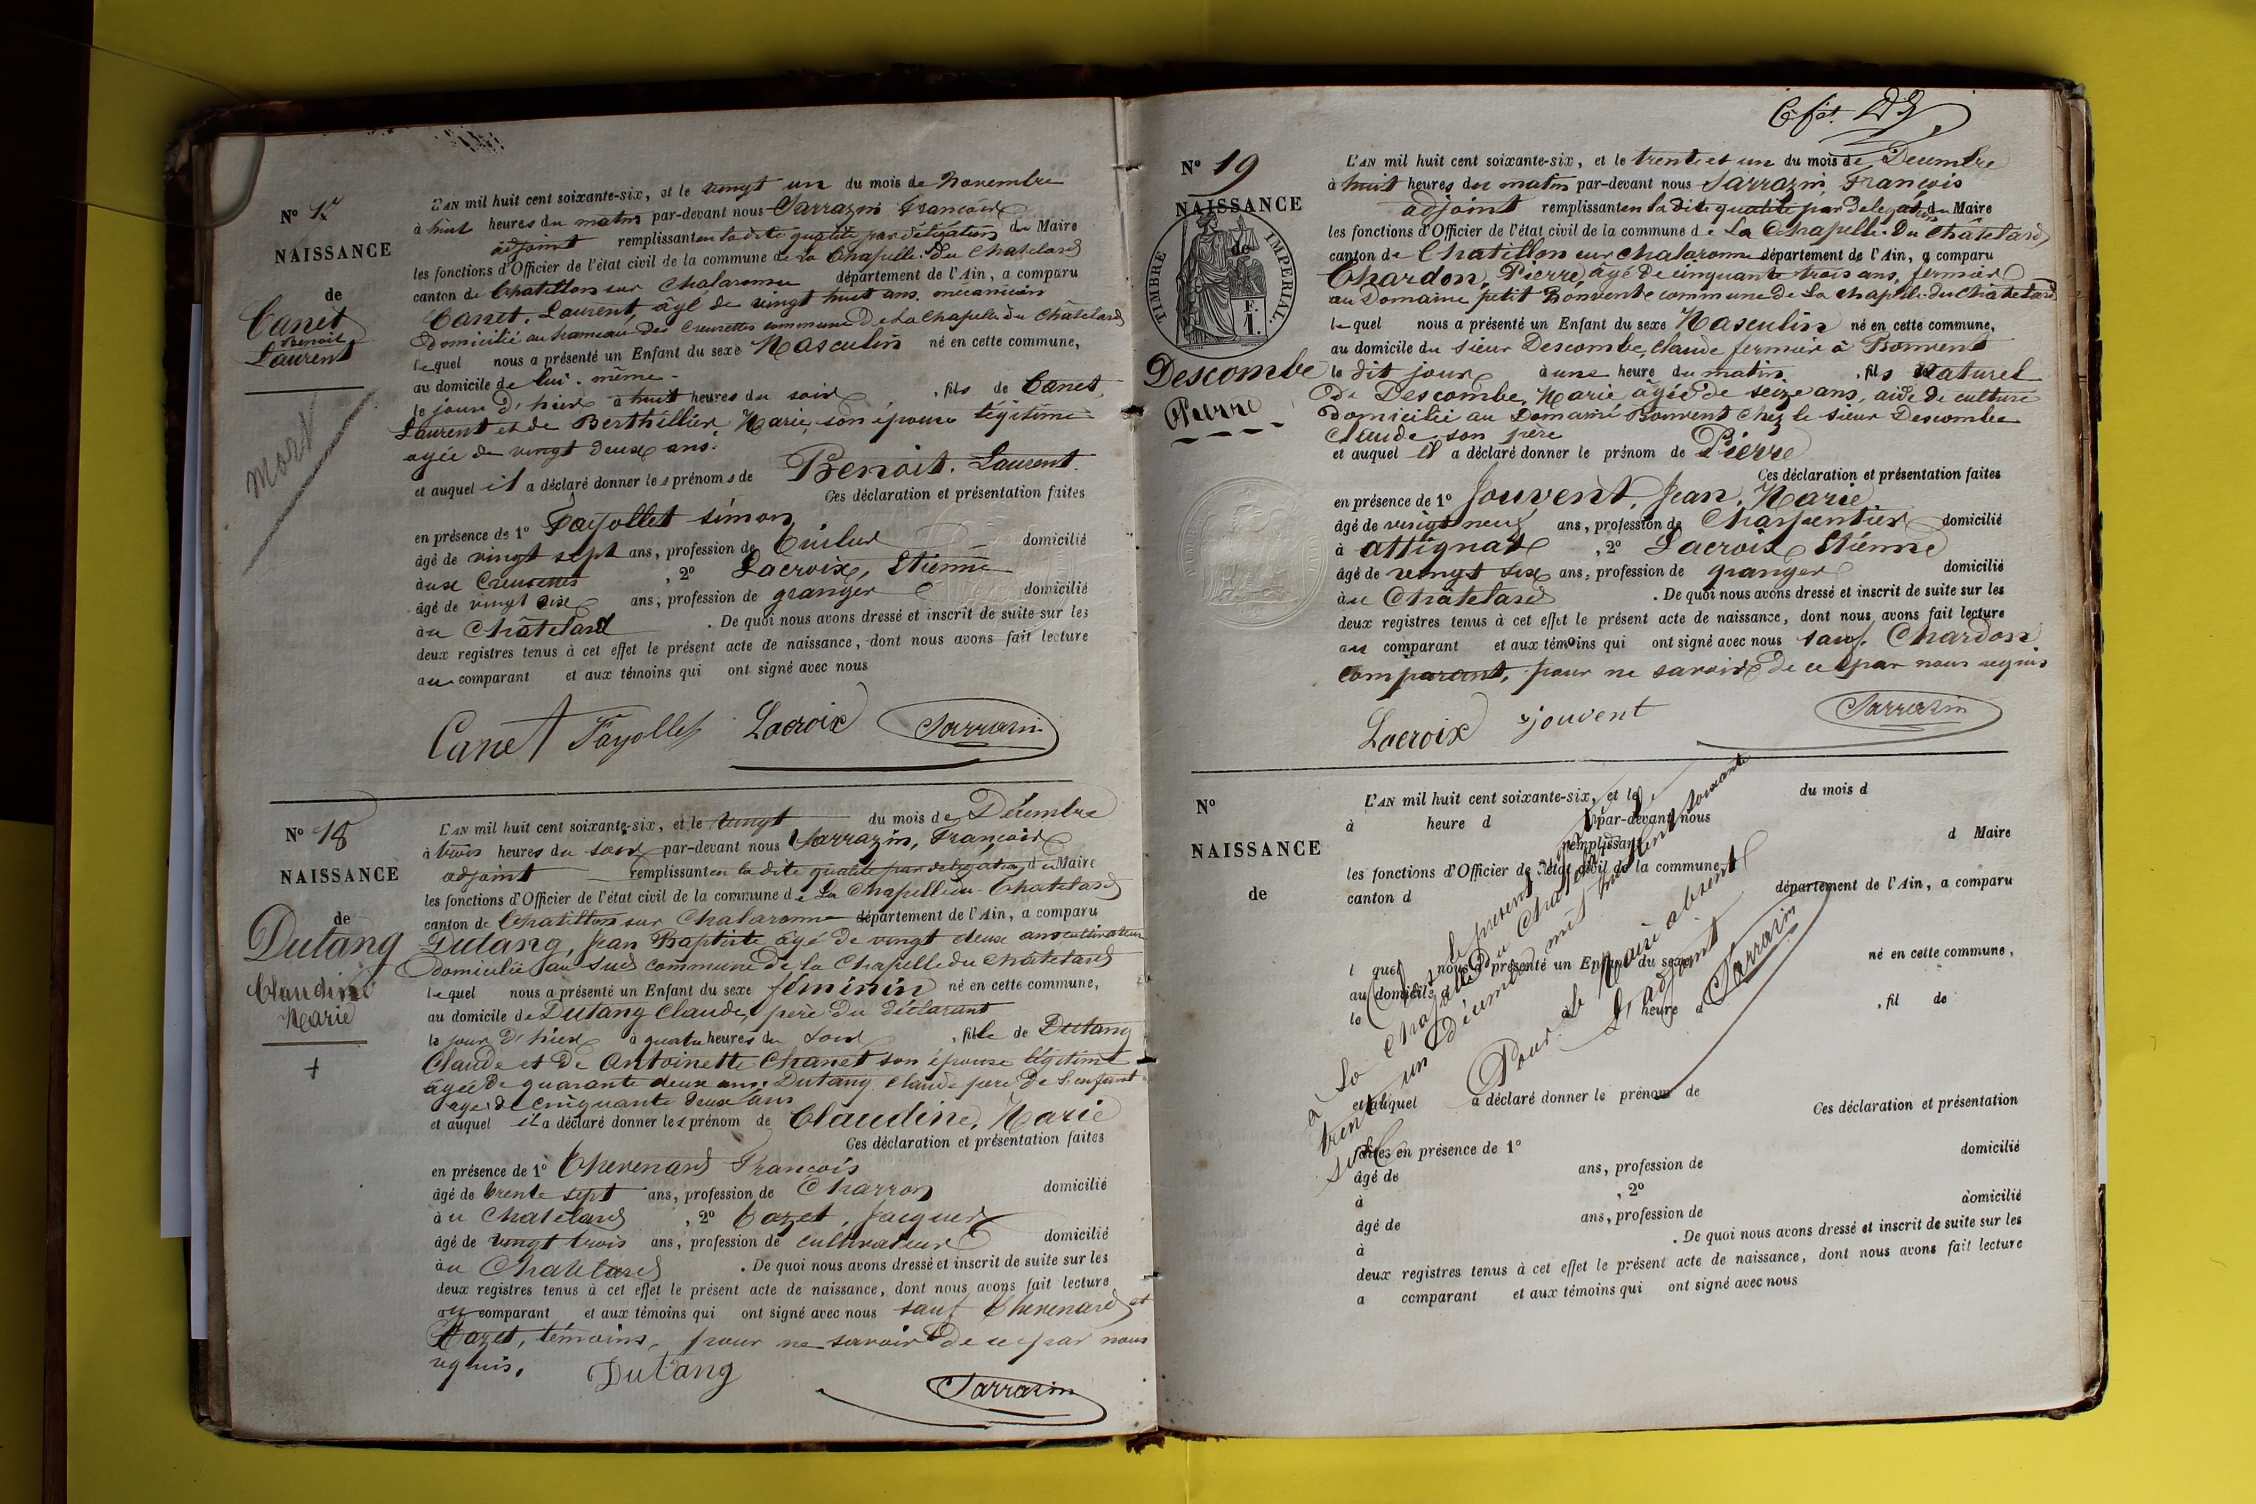 N° 17
NAISSANCE
de
Canet
Benoit
Laurent
mort
L'AN mil huit cent soixante-six, et le vingt un du mois de Novembre
à huit heures du matin par-devant nous Sarrazin François
adjoint remplissant en la dite qualité par délégation du Maire
les fonctions d'Officier de l'état civil de la commune de La Chapelle du Chatelard
canton de Chatillon sur Chalaronne département de l'Ain, a comparu
Canet, Laurent, âgé de vingt huit ans, mécanicien
domicilié au hameau des Creusettes commune de La Chapelle du Châtelard
lequel nous a présenté un Enfant du sexe Masculin né en cette commune,
au domicile de lui-même
le jour d'hier à huit heures du soir, fils de Canet,
Laurent et de Berthillier Marie, son épouse légitime
agée de vingt deux ans.
et auquel il a déclaré donner les prénoms de Benoit. Laurent.
Ces déclaration et présentation faites
en présence de 1° Fayollet Simon
âgé de vingt sept ans, profession de Tuilier domicilié
aux Creusettes, 2° Lacroix, Etienne
âgé de vingt six ans, profession de granger domicilié
au Châtelard. De quoi nous avons dressé et inscrit de suite sur les
deux registres tenus à cet effet le présent acte de naissance, dont nous avons fait lecture
au comparant et aux témoins qui ont signé avec nous
Canet Fayollet Lacroix Sarrazin
N° 18
NAISSANCE
de
Dutang
Claudine
Marie
+
L'AN mil huit cent soixante-six, et le vingt du mois de Décembre
à trois heures du soir par-devant nous Sarrazin, François
adjoint remplissant en la dite qualité par délégation du Maire
les fonctions d'Officier de l'état civil de la commune de La Chapelle du Chatelard
canton de Chatillon sur Chalaronne département de l'Ain, a comparu
Dutang, Jean Baptiste âgé de vingt deux ans cultivateur
domicilié au Sud commune de la Chapelle du Châtelard
lequel nous a présenté un Enfant du sexe féminin né en cette commune,
au domicile de Dutang Claude, père du déclarant
le jour d'hier à quatre heures du soir, fille de Dutang
Claude et de Antoinette Chanet son épouse légitime
âgée de quarante deux ans. Dutang Claude père de l'enfant
agé de cinquante deux ans
et auquel il a déclaré donner les prénom de Claudine, Marie
Ces déclaration et présentation faites
en présence de 1° Thevenard François
âgé de trente sept ans, profession de Charron domicilié
au Chatelard, 2° Cozet, Jacques
âgé de vingt trois ans, profession de cultivateur domicilié
au Chatelard. De quoi nous avons dressé et inscrit de suite sur les
deux registres tenus à cet effet le présent acte de naissance, dont nous avons fait lecture
au comparant et aux témoins qui ont signé avec nous sauf Thevenard et
Cozet, témoins, pour ne savoir de ce par nous
requis.
Dutang Sarrazin
N° 19
NAISSANCE
de
TIMBRE IMPERIAL.
F.
1.
Descombe
Pierre
L'AN mil huit cent soixante-six, et le trente et un du mois de Décembre
à huit heures du matin par-devant nous Sarrazin François
adjoint remplissant en la dite qualité par délégation du Maire
les fonctions d'Officier de l'état civil de la commune de La Chapelle du Châtelard
canton de Chatillon sur Chalaronne département de l'Ain, a comparu
Chardon, Pierre, âgé de cinquante trois ans, fermier
au Domaine petit Bonvent commune de La Chapelle du Châtelard
lequel nous a présenté un Enfant du sexe Masculin né en cette commune,
au domicile du sieur Descombe, Claude fermier à Bonvent
le dit jour à une heure du matin, fils Naturel
de Descombe, Marie âgée de seize ans, aide de culture
domiciliée au Domaine Bonvent chez le sieur Descombe
Claude son père
et auquel il a déclaré donner le prénom de Pierre
Ces déclaration et présentation faites
en présence de 1° Jouvent, Jean, Marie
âgé de vingt neuf ans, profession de Charpentier domicilié
à Attignat, 2° Lacroix Etienne
âgé de vingt six ans, profession de granger domicilié
au Châtelard. De quoi nous avons dressé et inscrit de suite sur les
deux registres tenus à cet effet le présent acte de naissance, dont nous avons fait lecture
au comparant et aux témoins qui ont signé avec nous sauf Chardon
comparant, pour ne savoir de ce par nous requis.
Lacroix Jouvent Sarrazin
N°
NAISSANCE
de
L'AN mil huit cent soixante-six, et le du mois d
à heure d par-devant nous
remplissant d Maire
les fonctions d'Officier de l'état civil de la commune
canton d département de l'Ain, a comparu
l quel nous a présenté un Enfant du sexe né en cette commune,
au domicile d
le à heure d, fil de
et auquel a déclaré donner le prénom de
Ces déclaration et présentation
faites en présence de 1° domicilié
âgé de ans, profession de
à, 2° domicilié
âgé de ans, profession de
à. De quoi nous avons dressé et inscrit de suite sur les
deux registres tenus à cet effet le présent acte de naissance, dont nous avons fait lecture
a comparant et aux témoins qui ont signé avec nous
Clos le présent
à La Chapelle du Chatelard
trente un décembre mil huit cent soixante
six
Pour le Maire absent
L'adjoint
Sarrazin